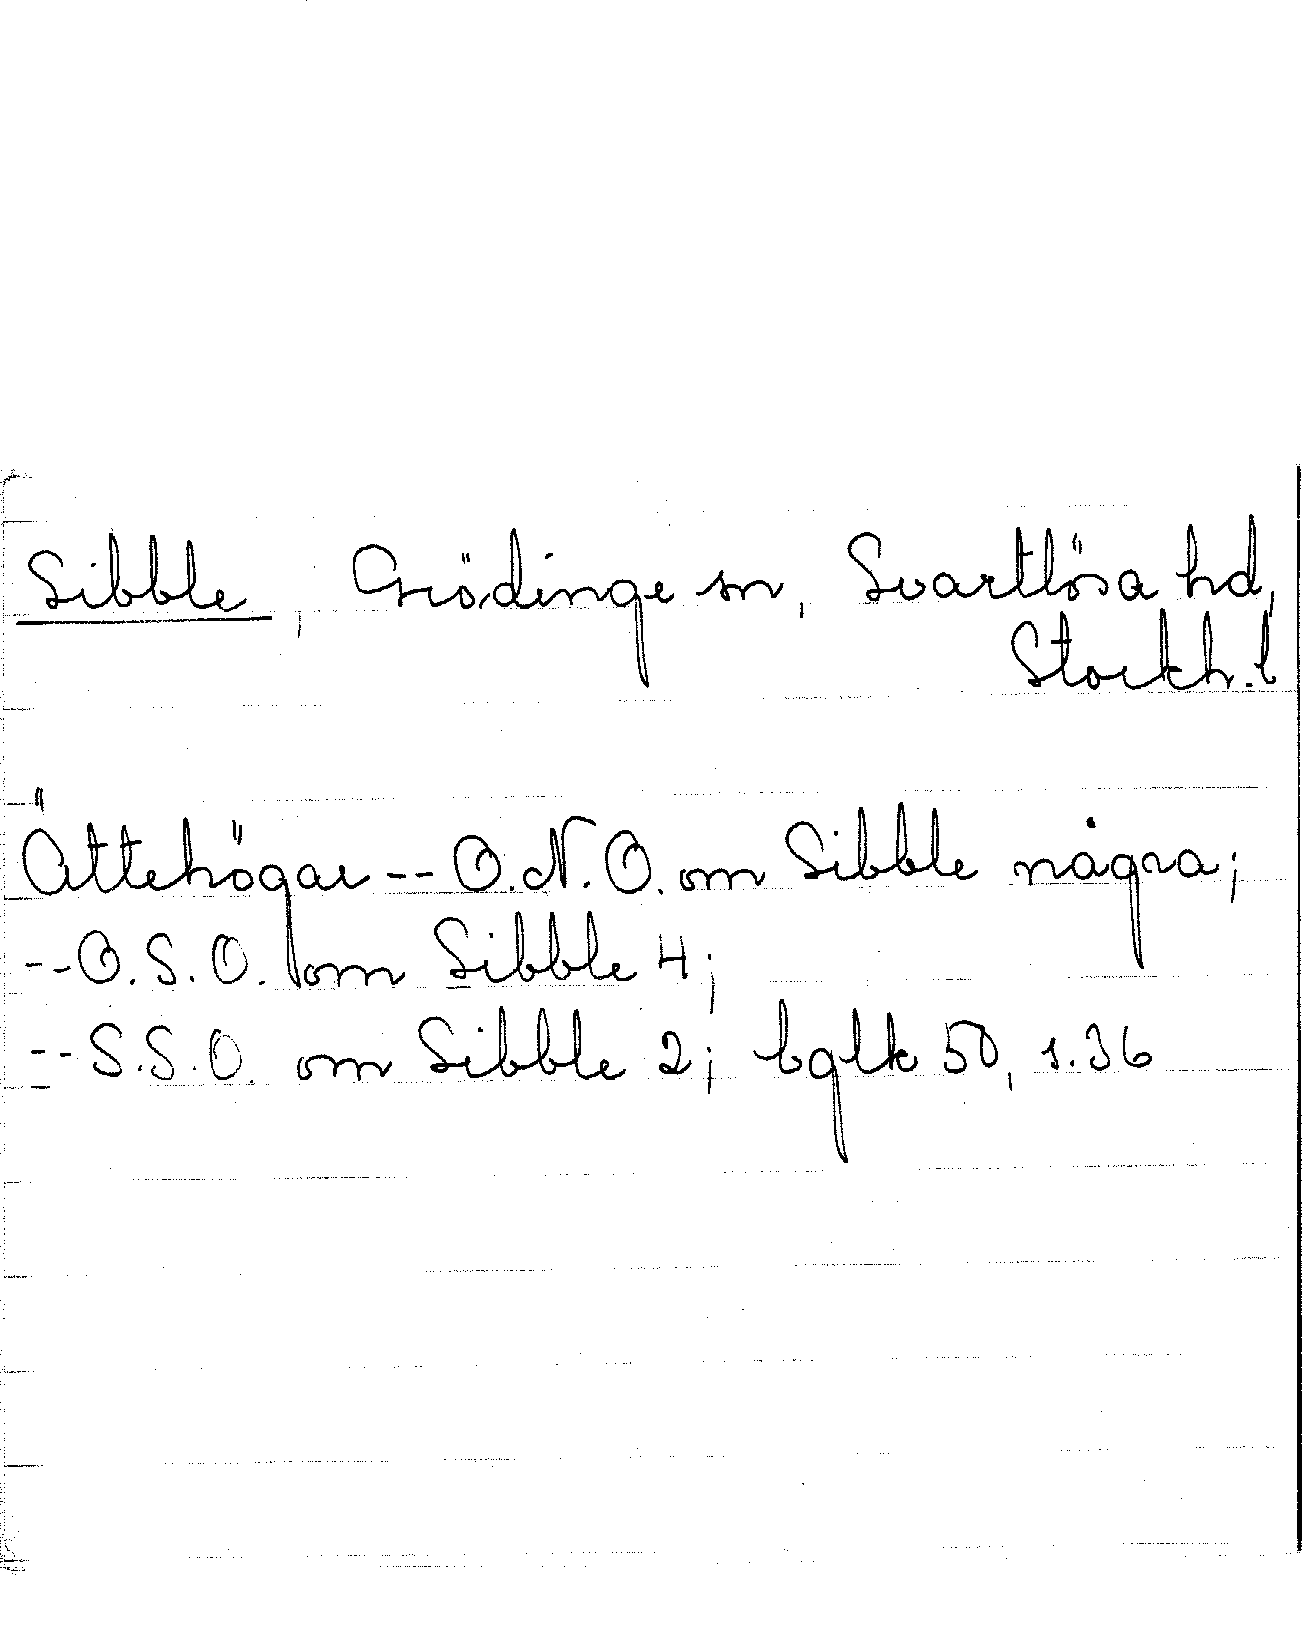 Sibble, Grödinge sn, Svartlösa hd,
Stockh. l
Ättehögar -- O.N.O. om Sibble några;
-- O.S.O. om Sibble 4;
-- S.S.O. om Sibble 2; bglk 50, s. 36